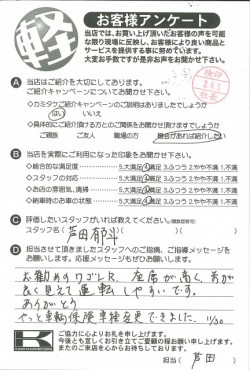 軽
お客様アンケート
当店では、お買い上げ頂いたお客様の声を可能
な限り現場に反映し、お客様により良い商品と
サービスを提供する事に努めています。
大変お手数ですが是非お声をお聞かせ下さい。
検印
Ⓐ 当店はご紹介を大切にしております。
ご紹介キャンペーンについてお聞かせ下さい。
◇カミタウご紹介キャンペーンのご説明はありましたでしょうか
はい いいえ
◇具体的にご紹介頂ける方とのご関係をお聞かせ頂けますでしょうか
ご親族 ご友人 職場の方 機会があれば紹介したい
Ⓑ 当店を実際にご利用になった印象をお聞かせ下さい。
◇総合的な満足度 5.大満足 4.満足 3.ふつう 2.やや不満 1.不満
◇スタッフの対応 5.大満足 4.満足 3.ふつう 2.やや不満 1.不満
◇お店の雰囲気、清掃 5.大満足 4.満足 3.ふつう 2.やや不満 1.不満
◇納車時のお車の状態 5.大満足 4.満足 3.ふつう 2.やや不満 1.不満
Ⓒ 評価したいスタッフがいれば教えてください。(複数回答可)
スタッフ名( 芦田
Ⓓ 担当させて頂きましたスタッフへのご指摘、ご指導メッセージを
お願いします。応援メッセージもぜひお願いします。
お勧めのワゴンR、座席が高く、前が
良く見えて運転しやすいです。
ありがとう
やっと車輌保険車検変更できました。11/30
K
ご協力に心よりお礼を申し上げます。
今後とも宜しくお引き立てご愛顧の程お願い申し上げます。
またのご来店を心からお待ちしております。
担当( 芦田 )